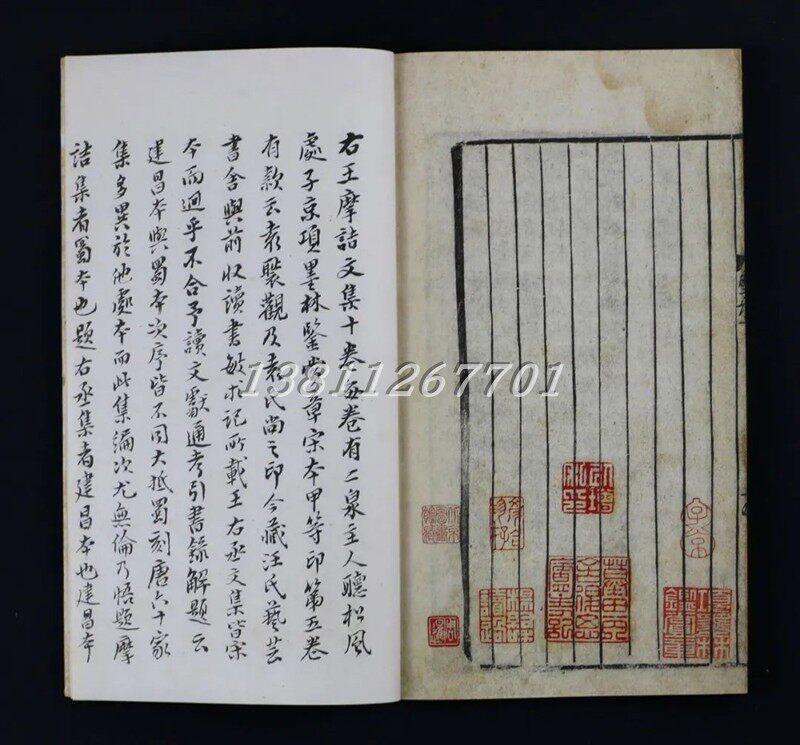 右王摩詰文集十卷每卷有二泉主人聽松風
處子京項墨林鑒賞章宋本甲等印第五卷
有款云袁褧觀及袁氏尚之印今藏汪氏藝芸
書舍與前收讀書敏求記所載王右丞文集皆宋
本而迥乎不合予讀文獻通考引書錄解題云
建昌本與蜀本次序皆不同大抵蜀刻唐六十家
集多異於他處本而此集編次尤無倫乃悟題摩
詰集者蜀本也題右丞集者建昌本也建昌本
13811267701
子京